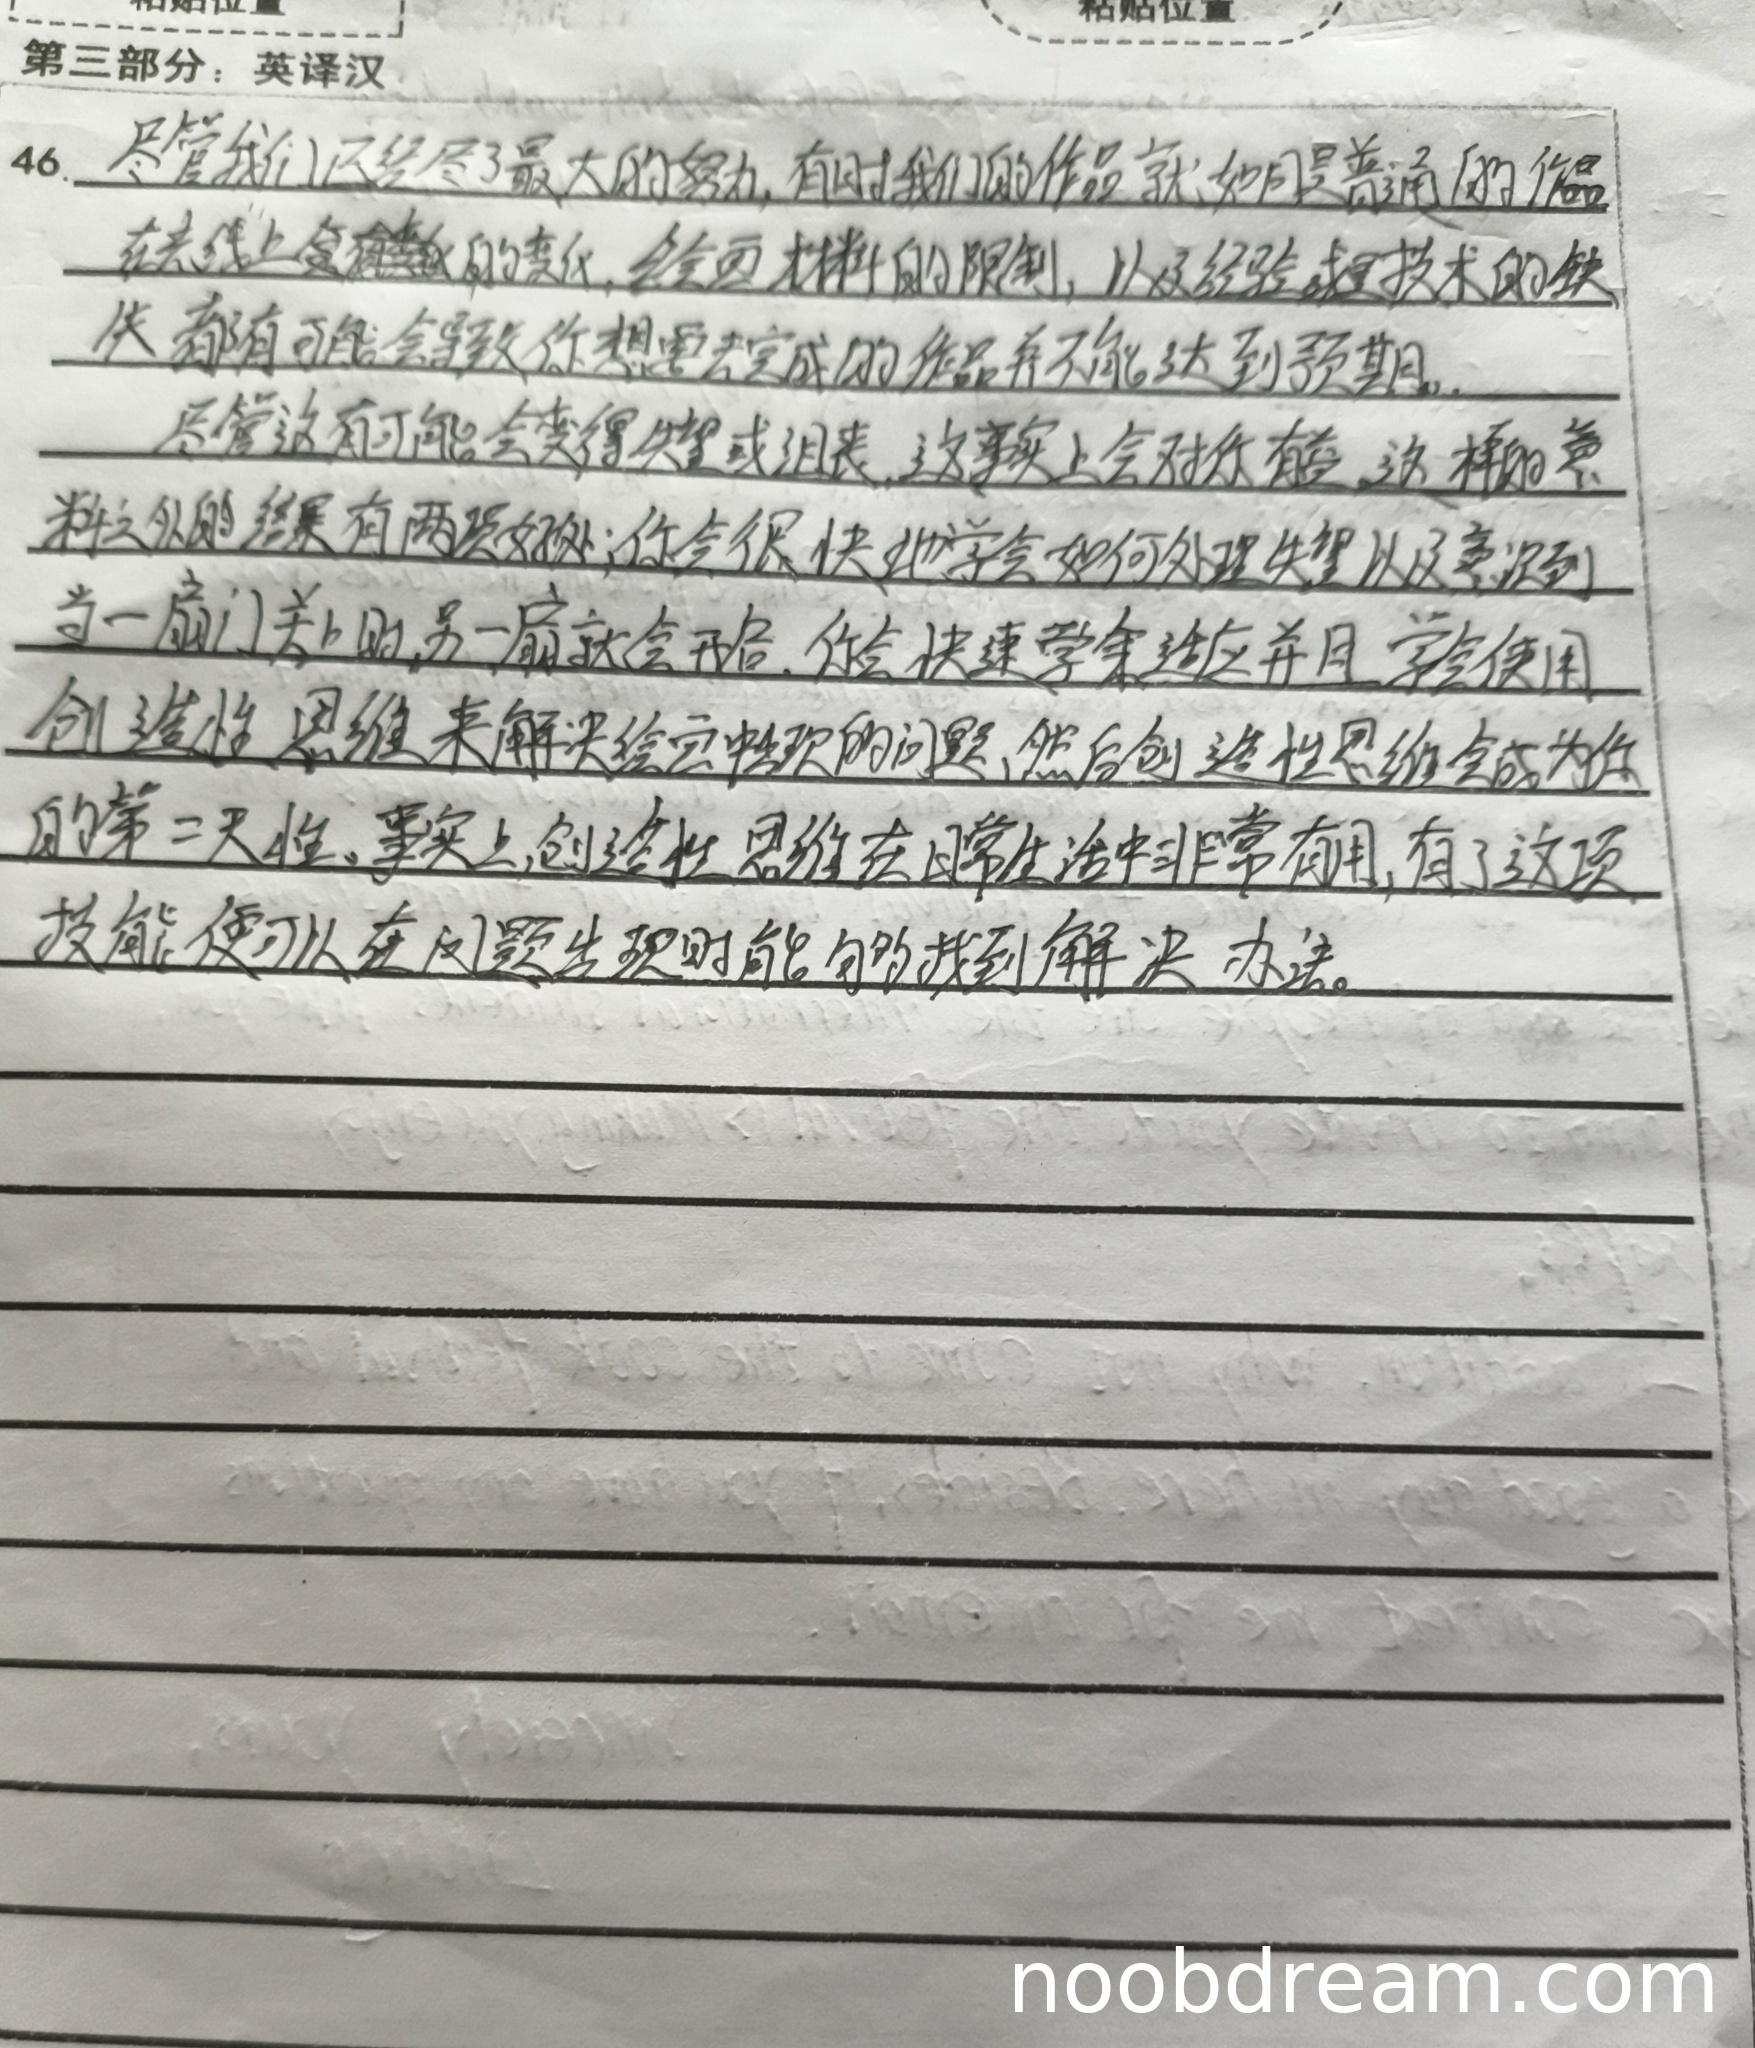 粘贴位置 粘贴位置
第三部分：英译汉
46. 尽管我们已经尽了最大的努力,有时我们的作品就如同是普通的作品
在表线上会有 的变化,绘画材料的限制,以及经验或是技术的缺
失都有可能会导致你想要去完成的作品并不能达到预期。
尽管这有可能会变得失望或沮丧,这事实上会对你有益,这样的意
料之外的结果有两项好处;你会很快地学会如何处理失望以及意识到
当一扇门关上时,另一扇就会开启.你会快速学会适应并且学会使用
创造性思维来解决绘画中出现的问题,然后创造性思维会成为你
的第二天性。事实上,创造性思维在日常生活中非常有用,有了这项
技能便可以在问题出现时能够的找到解决办法。
noobdream.com